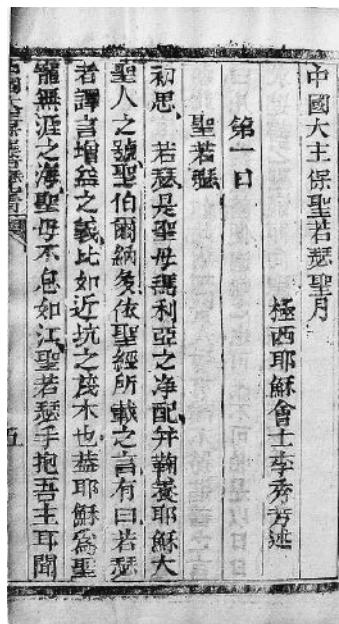 中國大主保聖若瑟聖月
極西耶穌會士李秀芳述
第一日
聖若瑟
初思、若瑟是聖母瑪利亞之净配、并鞠養耶穌大
聖人之號、聖伯爾納多、依聖經所載之言、有曰若瑟
者譯言增益之義、比如近坑之茂木也、蓋耶穌爲聖
寵無涯之海、聖母不息如江、聖若瑟手抱吾主耳聞
中國大主保聖若瑟聖月 五